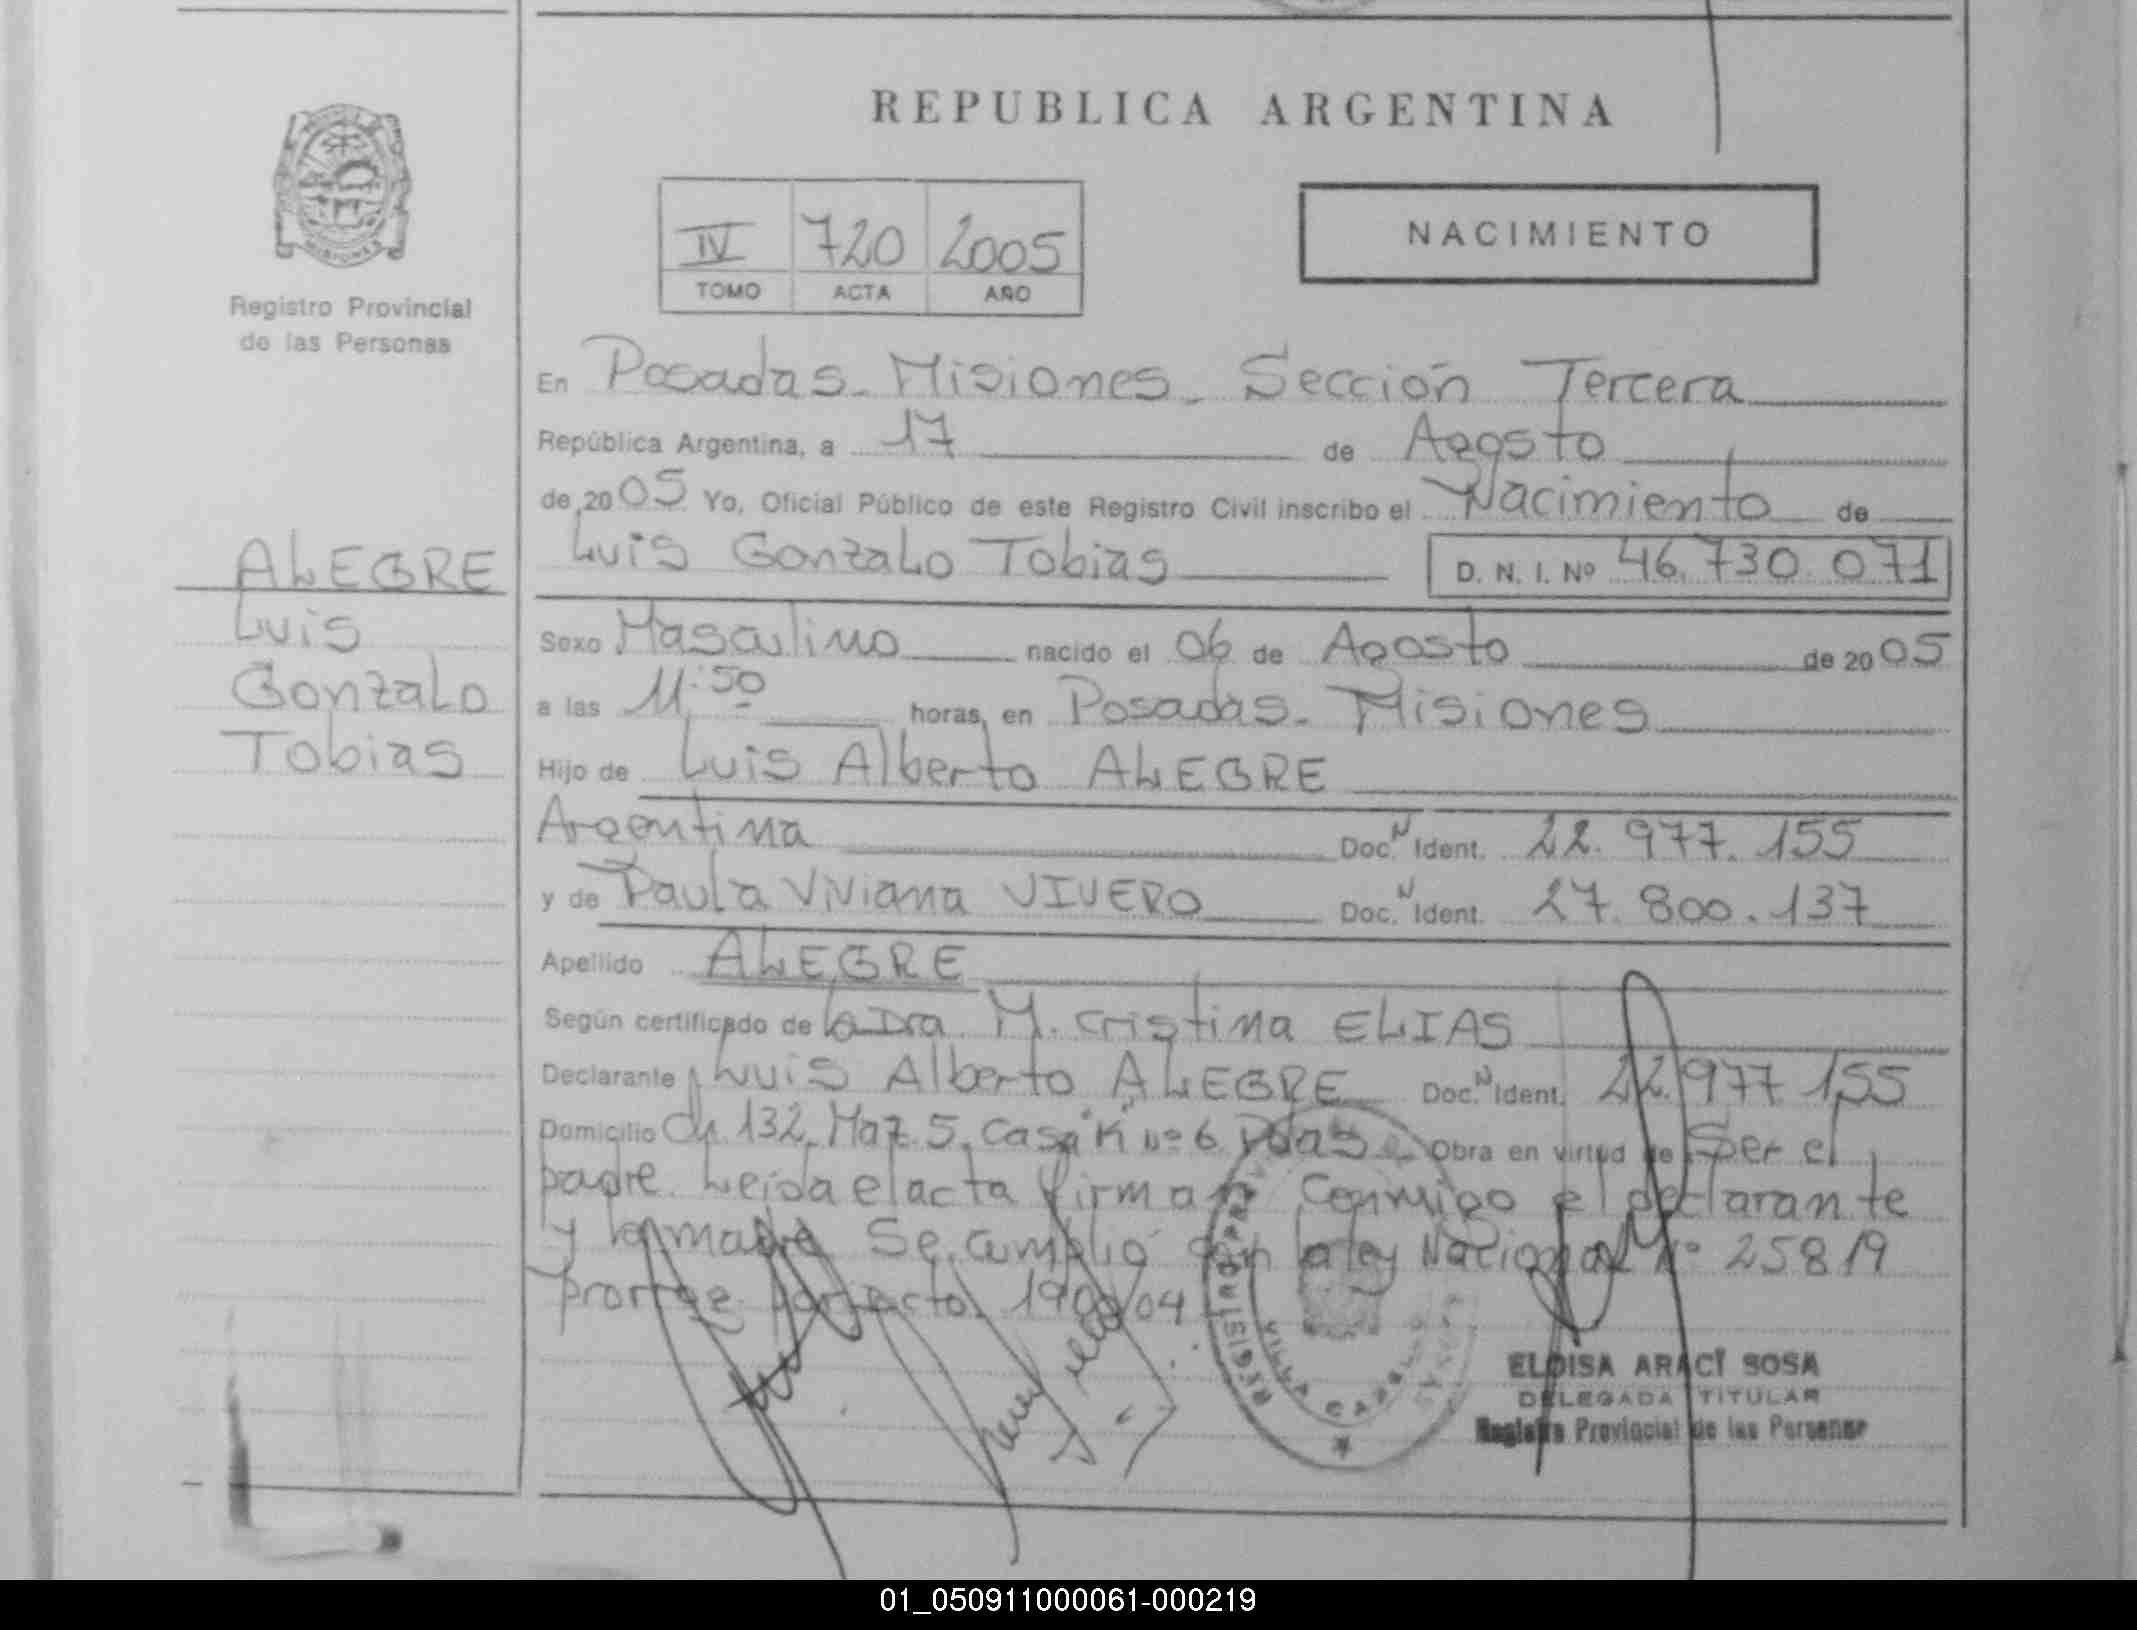 REPUBLICA ARGENTINA
IV 720 2005
TOMO ACTA AÑO
NACIMIENTO
Registro Provincial
de las Personas
ALEGRE
Luis
Gonzalo
Tobias
En Posadas - Misiones - Sección Tercera
República Argentina, a 17 de Agosto
de 2005 Yo, Oficial Público de este Registro Civil inscribo el Nacimiento de
Luis Gonzalo Tobias D. N. I. Nº 46.730.071
Sexo Masculino nacido el 06 de Agosto de 2005
a las 11:50 horas, en Posadas - Misiones
Hijo de Luis Alberto ALEGRE
Argentina Doc. N Ident. 22.977.155
y de Paula Viviana VIVERO Doc. N Ident. 27.800.137
Apellido ALEGRE
Según certificado de la Dra. M. Cristina ELIAS
Declarante Luis Alberto ALEGRE Doc. N Ident. 22.977.155
Domicilio Ch. 132, Maz. 5, Casa "K" Nº 6 Pdas - Obra en virtud de Ser el
padre. Leida el acta firman Conmigo el declarante
y la madre Se cumplió con la ley Nacional Nº 25819
Decreto 1900/04
VILLA CABELLO
ELOISA ARACI SOSA
DELEGADA TITULAR
Registro Provincial de las Personas
01_050911000061-000219